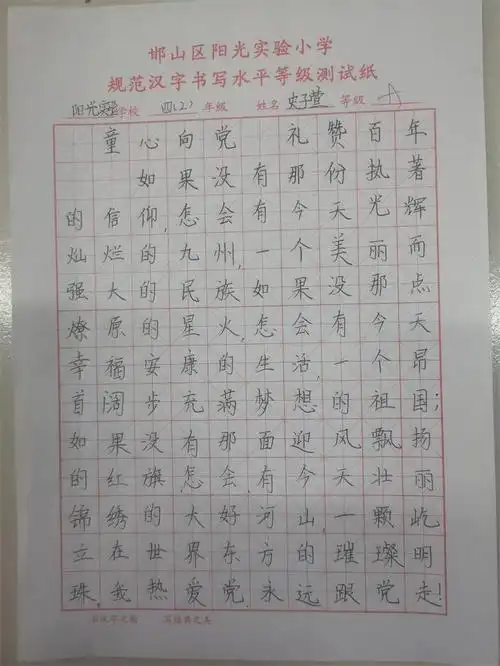 邯山区阳光实验小学
规范汉字书写水平等级测试纸
阳光实验学校 四(2)年级 姓名 史子萱 等级 A
童心向党 礼赞百年
如果没有那份执著
的信仰,怎会有今天光辉
灿烂的九州,一个美丽而
强大的民族如果没那点
燎原的星火,怎会有今天
幸福安康的生活,一个昂
首阔步充满梦想的祖国;
如果没有那面迎风飘扬
的红旗,怎会,有今天壮丽
锦绣的大好河山,一颗屹
立在世界东方的璀璨明
珠,我热爱党,永远跟党走!